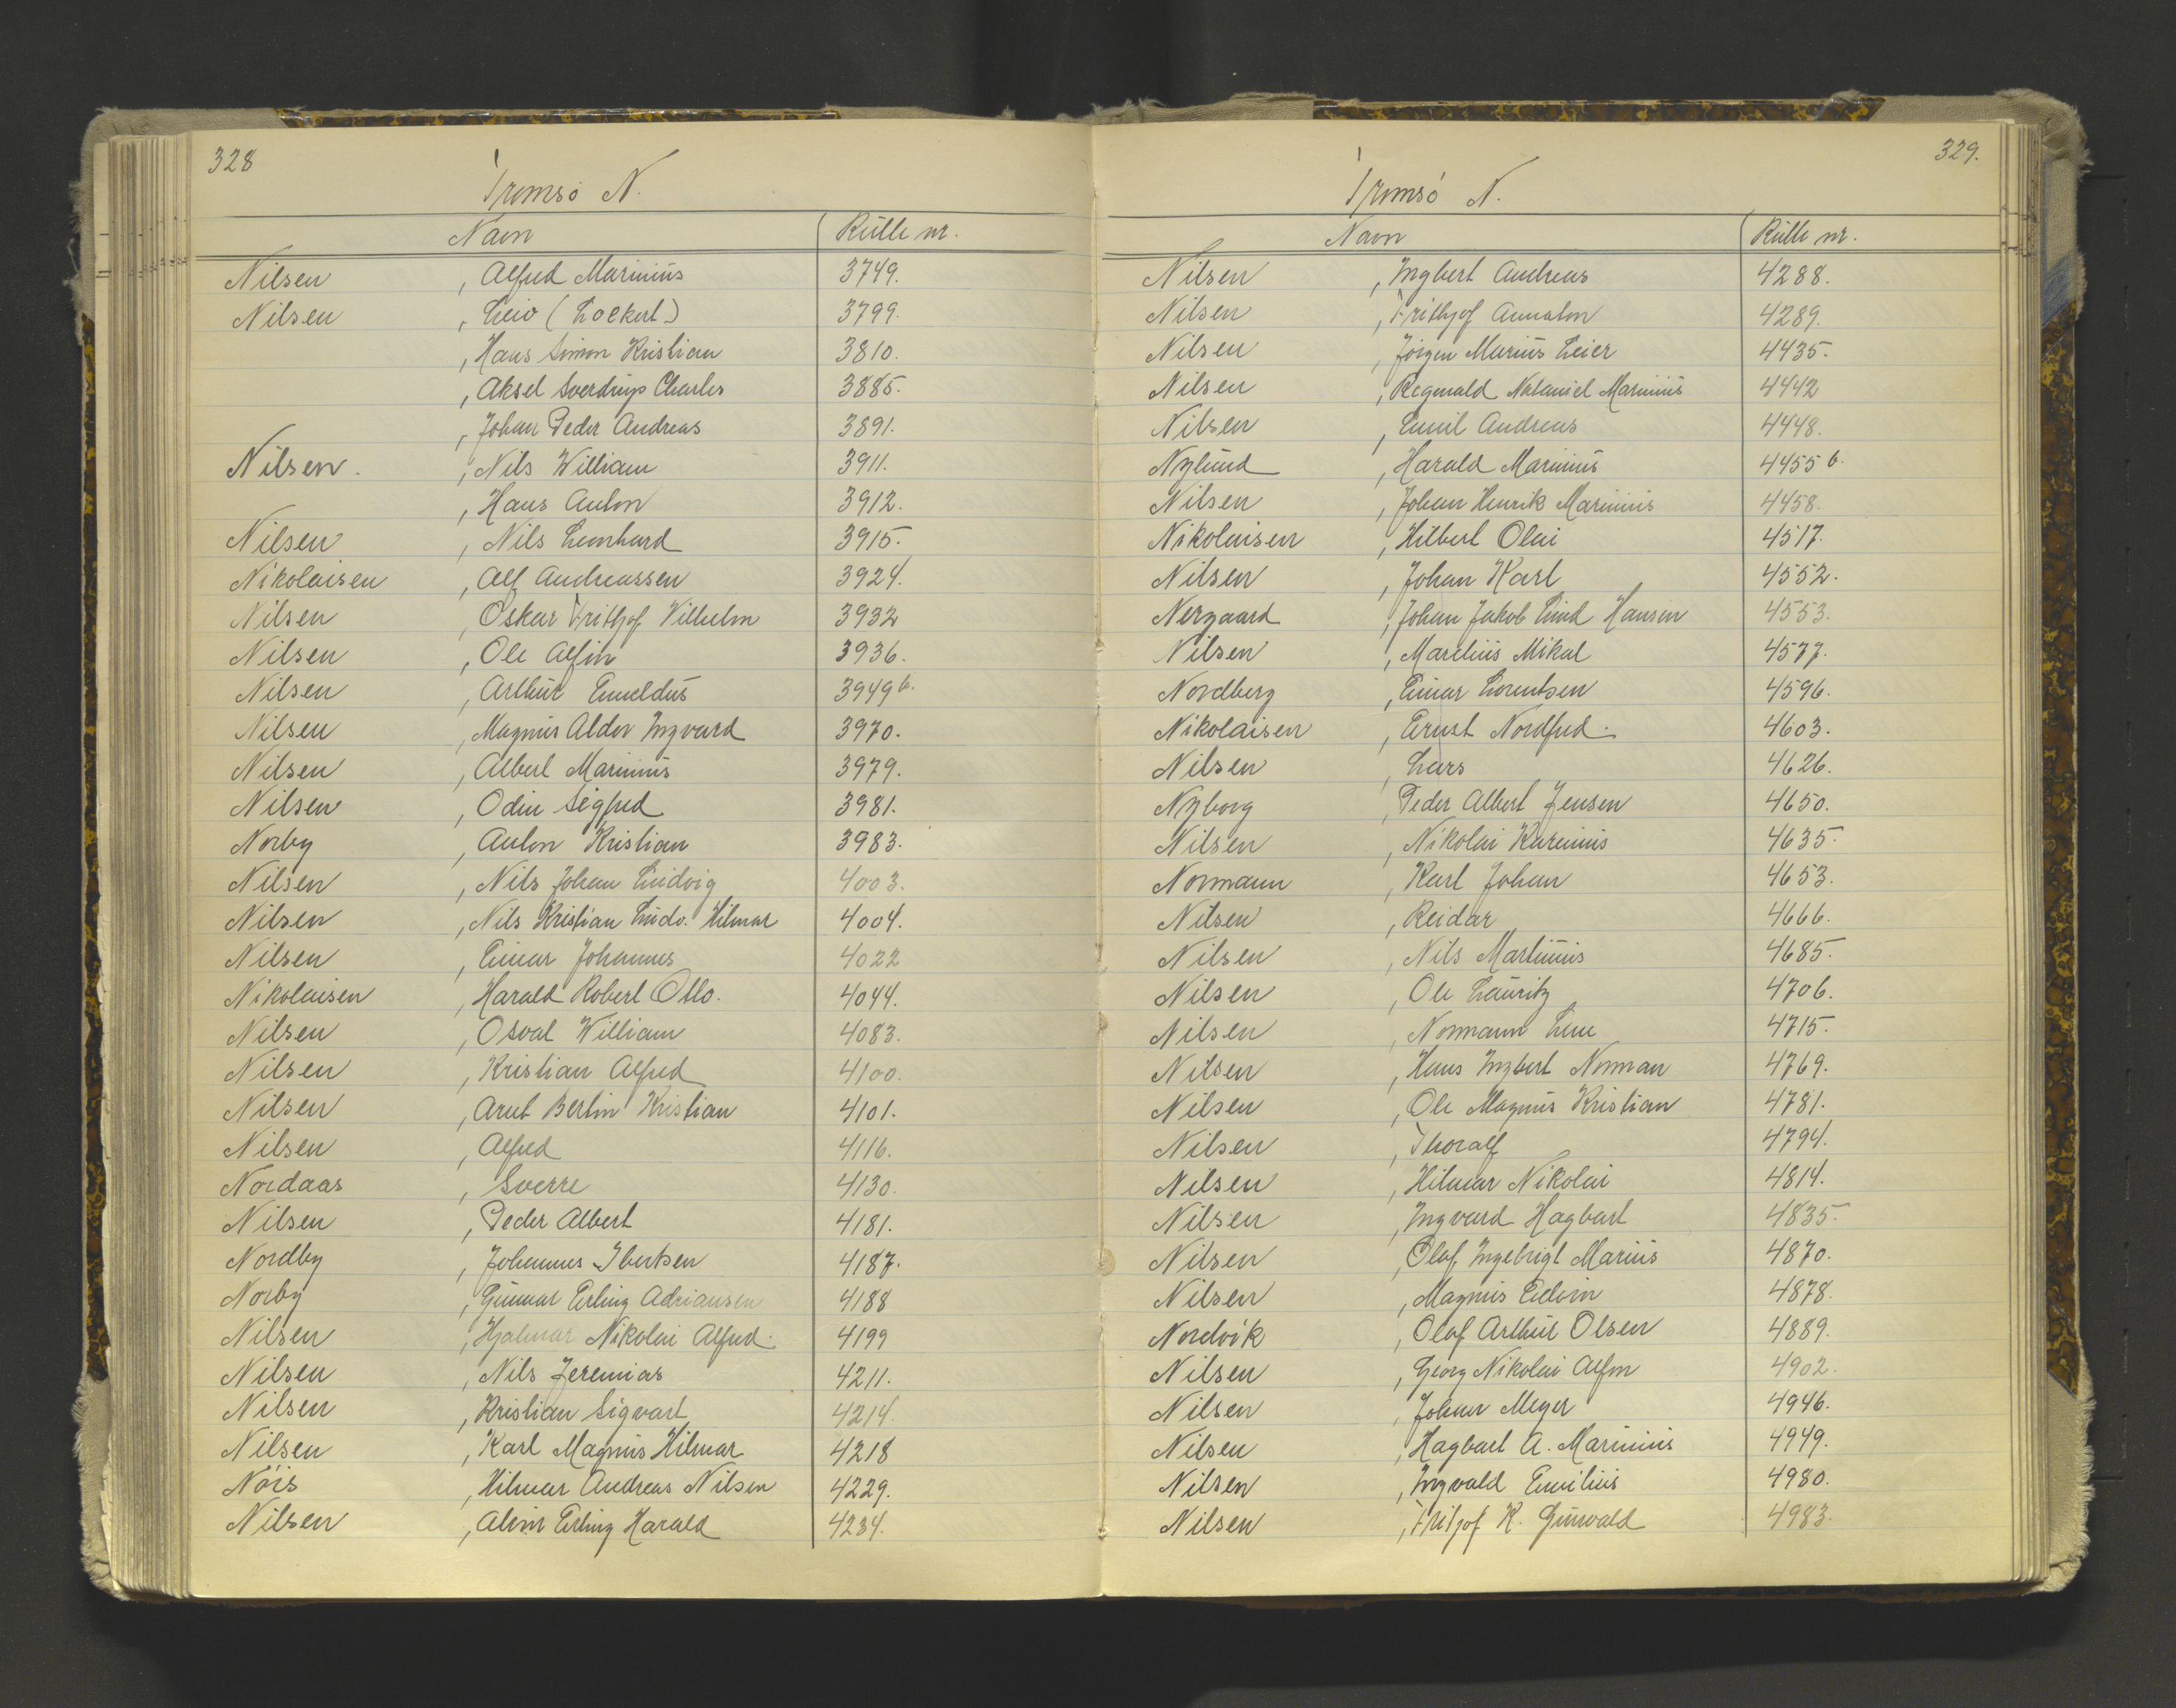 328
Tromsø N.
Navn Rulle nr.
Nilsen , Alfred Marinius 3749.
Nilsen , Leiv (Lockert) 3799.
, Hans Simon Kristian 3810.
, Aksel Sverdrup Charles 3885.
, Johan Peder Andreas 3891.
Nilsen. , Nils William 3911.
, Hans Anton 3912.
Nilsen , Nils Leonhard 3915.
Nikolaisen , Alf Andreassen 3924.
Nilsen , Oskar Frithjof Vilhelm 3932
Nilsen , Ole Alfin 3936.
Nilsen , Arthur Emeldus 3949 b.
Nilsen , Magnus Aldor Ingvard 3970.
Nilsen , Albert Marinius 3979.
Nilsen , Odin Sigfred 3981.
Norby , Anton Kristian 3983.
Nilsen , Nils Johan Ludvig 4003.
Nilsen , Nils Kristian Ludv. Hilmar 4004.
Nilsen , Einar Johannes 4022
Nikolaisen , Harald Robert Otto. 4044.
Nilsen , Osval William 4083.
Nilsen , Kristian Alfred 4100.
Nilsen , Arnt Bertin Kristian 4101.
Nilsen , Alfred 4116.
Nordaas , Sverre 4130.
Nilsen , Peder Albert 4181.
Nordby , Johannes Ibertsen 4187.
Norby , Gunnar Erling Adriansen 4188
Nilsen , Hjalmar Nikolai Alfred. 4199
Nilsen , Nils Jeremias 4211.
Nilsen , Kristian Sigvart 4214.
Nilsen , Karl Magnus Hilmar 4218
Nöis , Hilmar Andreas Nilsen 4229.
Nilsen , Alvin Erling Harald 4234.
329.
Tromsø N.
Navn Rulle nr.
Nilsen , Ingbert Andreas 4288.
Nilsen , Frithjof Annaton 4289.
Nilsen , Jörgen Marius Leier 4435.
Nilsen , Regnvald Nataniel Marinius 4442
Nilsen , Emil Andreas 4448.
Nylund , Harald Marinius 4455 b.
Nilsen , Johan Henrik Marinius 4458.
Nikolaisen , Hilbert Olai 4517.
Nilsen , Johan Karl 4552.
Nergaard , Johan Jakob Lind Hansen 4553.
Nilsen , Marelius Mikal 4577.
Nordberg , Einar Lorentsen 4596.
Nikolaisen , Ernst Nordfred. 4603.
Nilsen , Lars 4626.
Nyborg , Peder Albert Jensen 4650.
Nilsen , Nikolai Karenius 4635.
Normann , Karl Johan 4653.
Nilsen , Reidar 4666.
Nilsen , Nils Martinius 4685.
Nilsen , Ole Lauritz 4706.
Nilsen , Normann Lene 4715.
Nilsen , Hans Ingbert Norman 4769.
Nilsen , Ole Magnus Kristian 4781.
Nilsen , Thoralf 4794.
Nilsen , Hilmar Nikolai 4814.
Nilsen , Ingvard Hagbart 4835.
Nilsen , Olaf Ingebrigt Marius 4870.
Nilsen , Magnus Edvin 4878.
Nordvik , Olaf Arthur Olsen 4889.
Nilsen , Georg Nikolai Alfon 4902.
Nilsen , Johan Meyer 4946.
Nilsen , Hagbart A. Marinius 4949.
Nilsen , Ingvald Emilius 4980.
Nilsen , Frithjof K. Gunvald 4983.